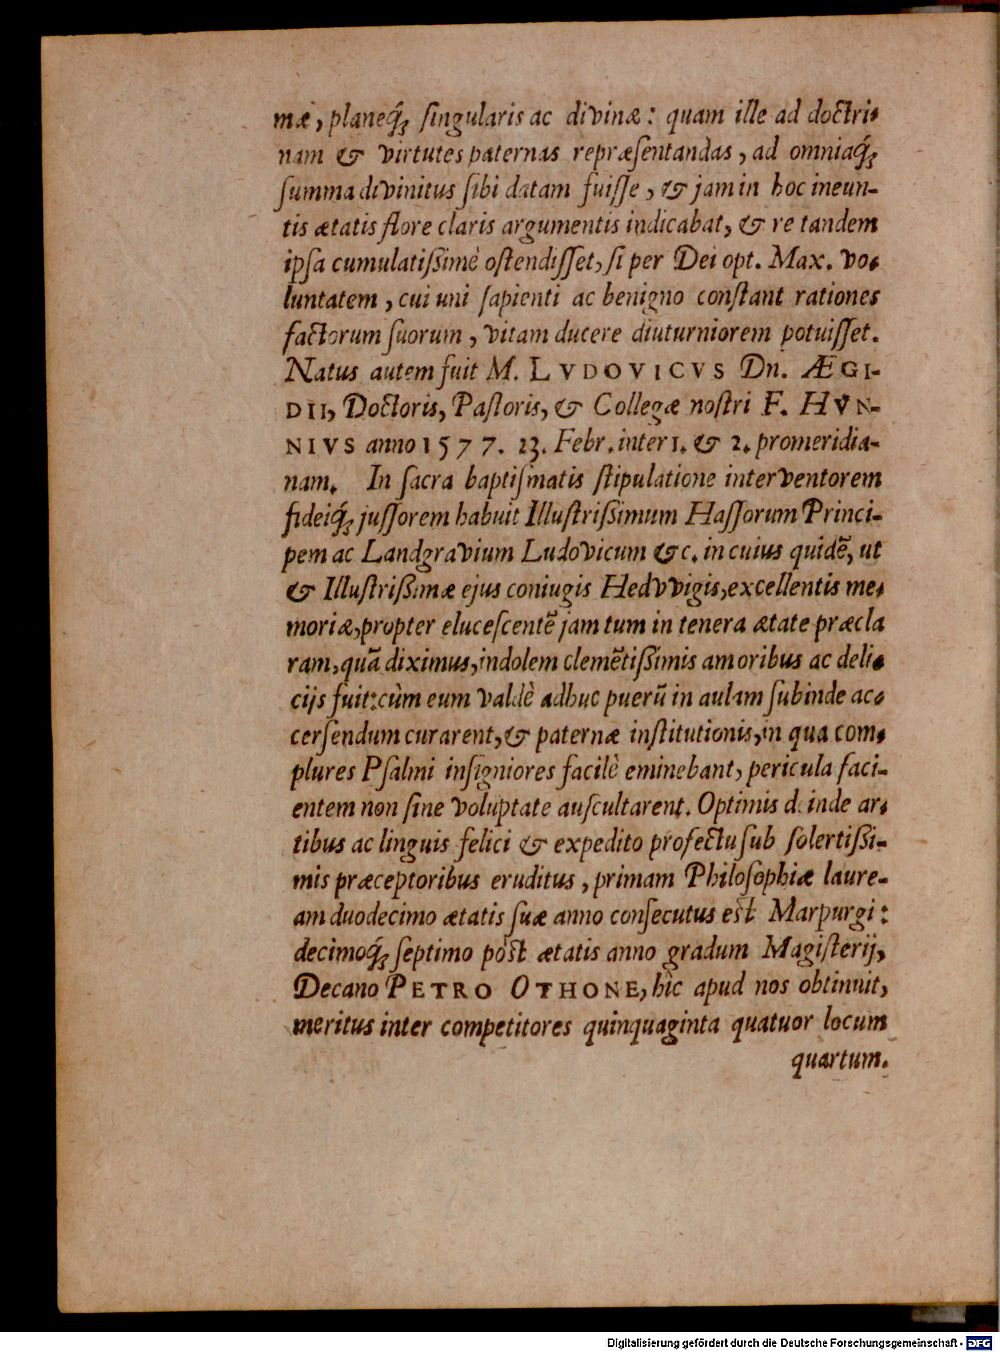 mæ, planeq́; ſingularis ac divinæ: quam ille ad doctri-
nam & virtutes paternas repræſentandas, ad omniaq́;
ſumma divinitus ſibi datam fuiſſe, & jam in hoc ineun-
tis ætatis flore claris argumentis indicabat, & re tandem
ipſa cumulatißimè oſtendiſſet, ſi per Dei opt. Max. vo-
luntatem, cui uni ſapienti ac benigno conſtant rationes
factorum ſuorum, vitam ducere diuturniorem potuiſſet.
Natus autem fuit M. LVDOVICVS Dn. ÆGI-
DII, Doctoris, Paſtoris, & Collegæ noſtri F. HVN-
NIVS anno 1577. 23. Febr. inter 1. & 2. promeridia-
nam. In ſacra baptiſmatis ſtipulatione interventorem
fideiq́; juſſorem habuit Illuſtrißimum Haſſorum Princi-
pem ac Landgravium Ludovicum &c. in cuius quidẽ, ut
& Illuſtrißimæ ejus coniugis Hedvvigis, excellentis me-
moriæ, propter eluceſcentẽ jam tum in tenera ætate præcla
ram, quã diximus, indolem clemẽtißimis amoribus ac deli-
cijs fuit: cùm eum valdè adhuc puerũ in aulam ſubinde ac-
cerſendum curarent, & paternæ inſtitutionis, in qua com-
plures Pſalmi inſigniores facilè eminebant, pericula faci-
entem non ſine voluptate auſcultarent. Optimis deinde ar-
tibus ac linguis felici & expedito profectu ſub ſolertißi-
mis præceptoribus eruditus, primam Philoſophiæ laure-
am duodecimo ætatis ſuæ anno conſecutus eſt Marpurgi:
decimoq́; ſeptimo pòſt ætatis anno gradum Magiſterij,
Decano PETRO OTHONE, hîc apud nos obtinuit,
meritus inter competitores quinquaginta quatuor locum
quartum.
Digitalisierung gefördert durch die Deutsche Forschungsgemeinschaft - DFG